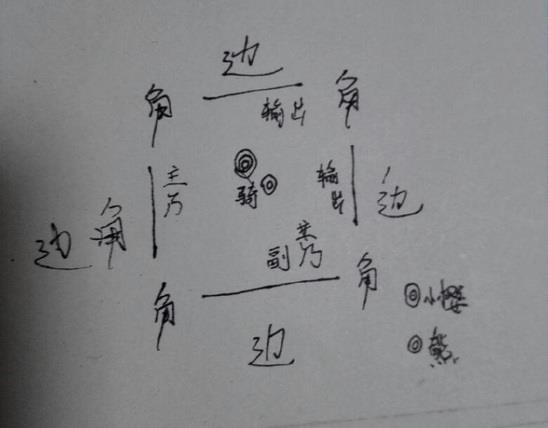 边
角
角
输出
主
乃
骑
输出
边
边
角
副
乃
角
角
边
小樱
熊